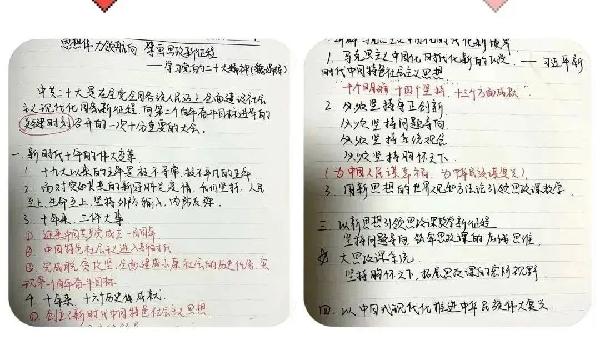 思想伟力领航向 奋画思政新征程
——学习党的二十大精神（
中共二十大是在全党全国各族人民迈上全面建设社会
主义现代化国家新征程，向第二个百年奋斗目标进军的
关键时刻召开的一次十分重要的大会。
一、新时代十年的伟大变革
1. 十九大以来的五年是极不寻常、极不平凡的五年
2. 面对突如其来的新冠肺炎疫情，我们坚持，人民
至上，生命至上，坚持外防输入，内防反弹。
3. 十年来，三件大事
① 迎来中国共产党成立一百周年
② 中国特色社会主义进入新时代
③ 完成脱贫攻坚、全面建成小康社会的历史任务，实
现第一个百年奋斗目标
4. 十年来，十六个历史性成就
① 创立了新时代中国特色社会主义思想
1. 马克思主义中国化时代化新的飞跃 —— 习近平新
时代中国特色社会主义思想
十个明确 十四个坚持，十三个方面成就
2. 必须坚持守正创新
必须坚持问题导向
必须坚持系统观念
必须坚持胸怀天下
（为中国人民谋幸福 为中华民族谋复兴）
3. 用新思想的世界观和方法论引领思政课教学
三、以新思想引领思政课教学新征程
坚持问题导向
大思政课
坚持胸怀天下，拓展思政课的 视野
四、以中国式现代化推进中华民族伟大复兴